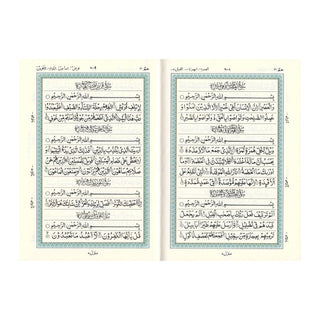 بِسْمِ اللَّهِ الرَّحْمَٰنِ الرَّحِيمِ
وَالْعَصْرِ إِنَّ الْإِنسَانَ لَفِي خُسْرٍ إِلَّا الَّذِينَ آمَنُوا وَعَمِلُوا
الصَّالِحَاتِ وَتَوَاصَوْا بِالْحَقِّ وَتَوَاصَوْا بِالصَّبْرِ
بِسْمِ اللَّهِ الرَّحْمَٰنِ الرَّحِيمِ
وَيْلٌ لِّكُلِّ هُمَزَةٍ لُّمَزَةٍ الَّذِي جَمَعَ مَالًا وَعَدَّدَهُ
يَحْسَبُ أَنَّ مَالَهُ أَخْلَدَهُ كَلَّا لَيُنبَذَنَّ فِي الْحُطَمَةِ
وَمَا أَدْرَاكَ مَا الْحُطَمَةُ نَارُ اللَّهِ الْمُوقَدَةُ الَّتِي تَطَّلِعُ عَلَى
الْأَفْئِدَةِ إِنَّهَا عَلَيْهِم مُّؤْصَدَةٌ فِي عَمَدٍ مُّمَدَّدَةٍ
بِسْمِ اللَّهِ الرَّحْمَٰنِ الرَّحِيمِ
أَلَمْ تَرَ كَيْفَ فَعَلَ رَبُّكَ بِأَصْحَابِ الْفِيلِ أَلَمْ يَجْعَلْ
كَيْدَهُمْ فِي تَضْلِيلٍ وَأَرْسَلَ عَلَيْهِمْ طَيْرًا أَبَابِيلَ
تَرْمِيهِم بِحِجَارَةٍ مِّن سِجِّيلٍ فَجَعَلَهُمْ كَعَصْفٍ مَّأْكُولٍ
بِسْمِ اللَّهِ الرَّحْمَٰنِ الرَّحِيمِ
لِإِيلَافِ قُرَيْشٍ إِيلَافِهِمْ رِحْلَةَ الشِّتَاءِ وَالصَّيْفِ فَلْيَعْبُدُوا
رَبَّ هَٰذَا الْبَيْتِ الَّذِي أَطْعَمَهُم مِّن جُوعٍ وَآمَنَهُم مِّنْ خَوْفٍ
بِسْمِ اللَّهِ الرَّحْمَٰنِ الرَّحِيمِ
أَرَأَيْتَ الَّذِي يُكَذِّبُ بِالدِّينِ فَذَٰلِكَ الَّذِي يَدُعُّ الْيَتِيمَ
وَلَا يَحُضُّ عَلَىٰ طَعَامِ الْمِسْكِينِ فَوَيْلٌ لِّلْمُصَلِّينَ الَّذِينَ هُمْ عَن
صَلَاتِهِمْ سَاهُونَ الَّذِينَ هُمْ يُرَاءُونَ وَيَمْنَعُونَ الْمَاعُونَ
بِسْمِ اللَّهِ الرَّحْمَٰنِ الرَّحِيمِ
إِنَّا أَعْطَيْنَاكَ الْكَوْثَرَ فَصَلِّ لِرَبِّكَ وَانْحَرْ إِنَّ شَانِئَكَ هُوَ الْأَبْتَرُ
بِسْمِ اللَّهِ الرَّحْمَٰنِ الرَّحِيمِ
قُلْ يَا أَيُّهَا الْكَافِرُونَ لَا أَعْبُدُ مَا تَعْبُدُونَ